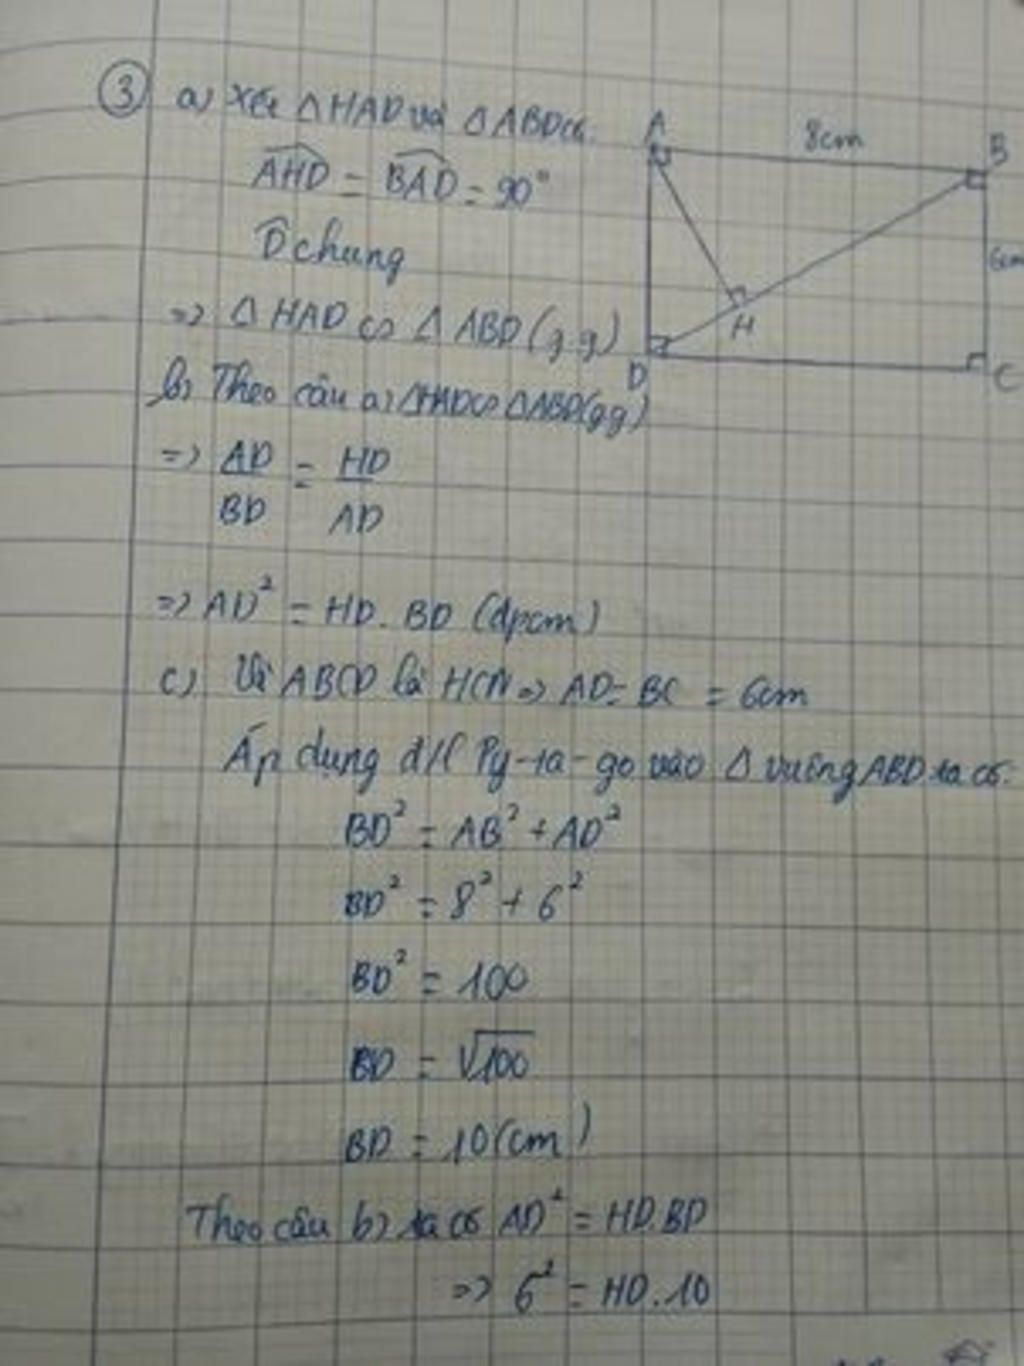 ③ a) Xét △HAD và △ABD có:
A
8cm
B
AHD = BAD = 90°
D̂ chung
6cm
=> △HAD ∽ △ABD (g.g)
H
D
C
b) Theo câu a) △HAD ∽ △ABD(gg)
=> AD/BD = HD/AD
=> AD² = HD. BD (đpcm)
c) Vì ABCD là HCN => AD = BC = 6cm
Áp dụng đ/l Py-ta-go vào △ vuông ABD ta có:
BD² = AB² + AD²
BD² = 8² + 6²
BD² = 100
BD = √100
BD = 10(cm)
Theo câu b) ta có AD² = HD.BD
=> 6² = HD.10